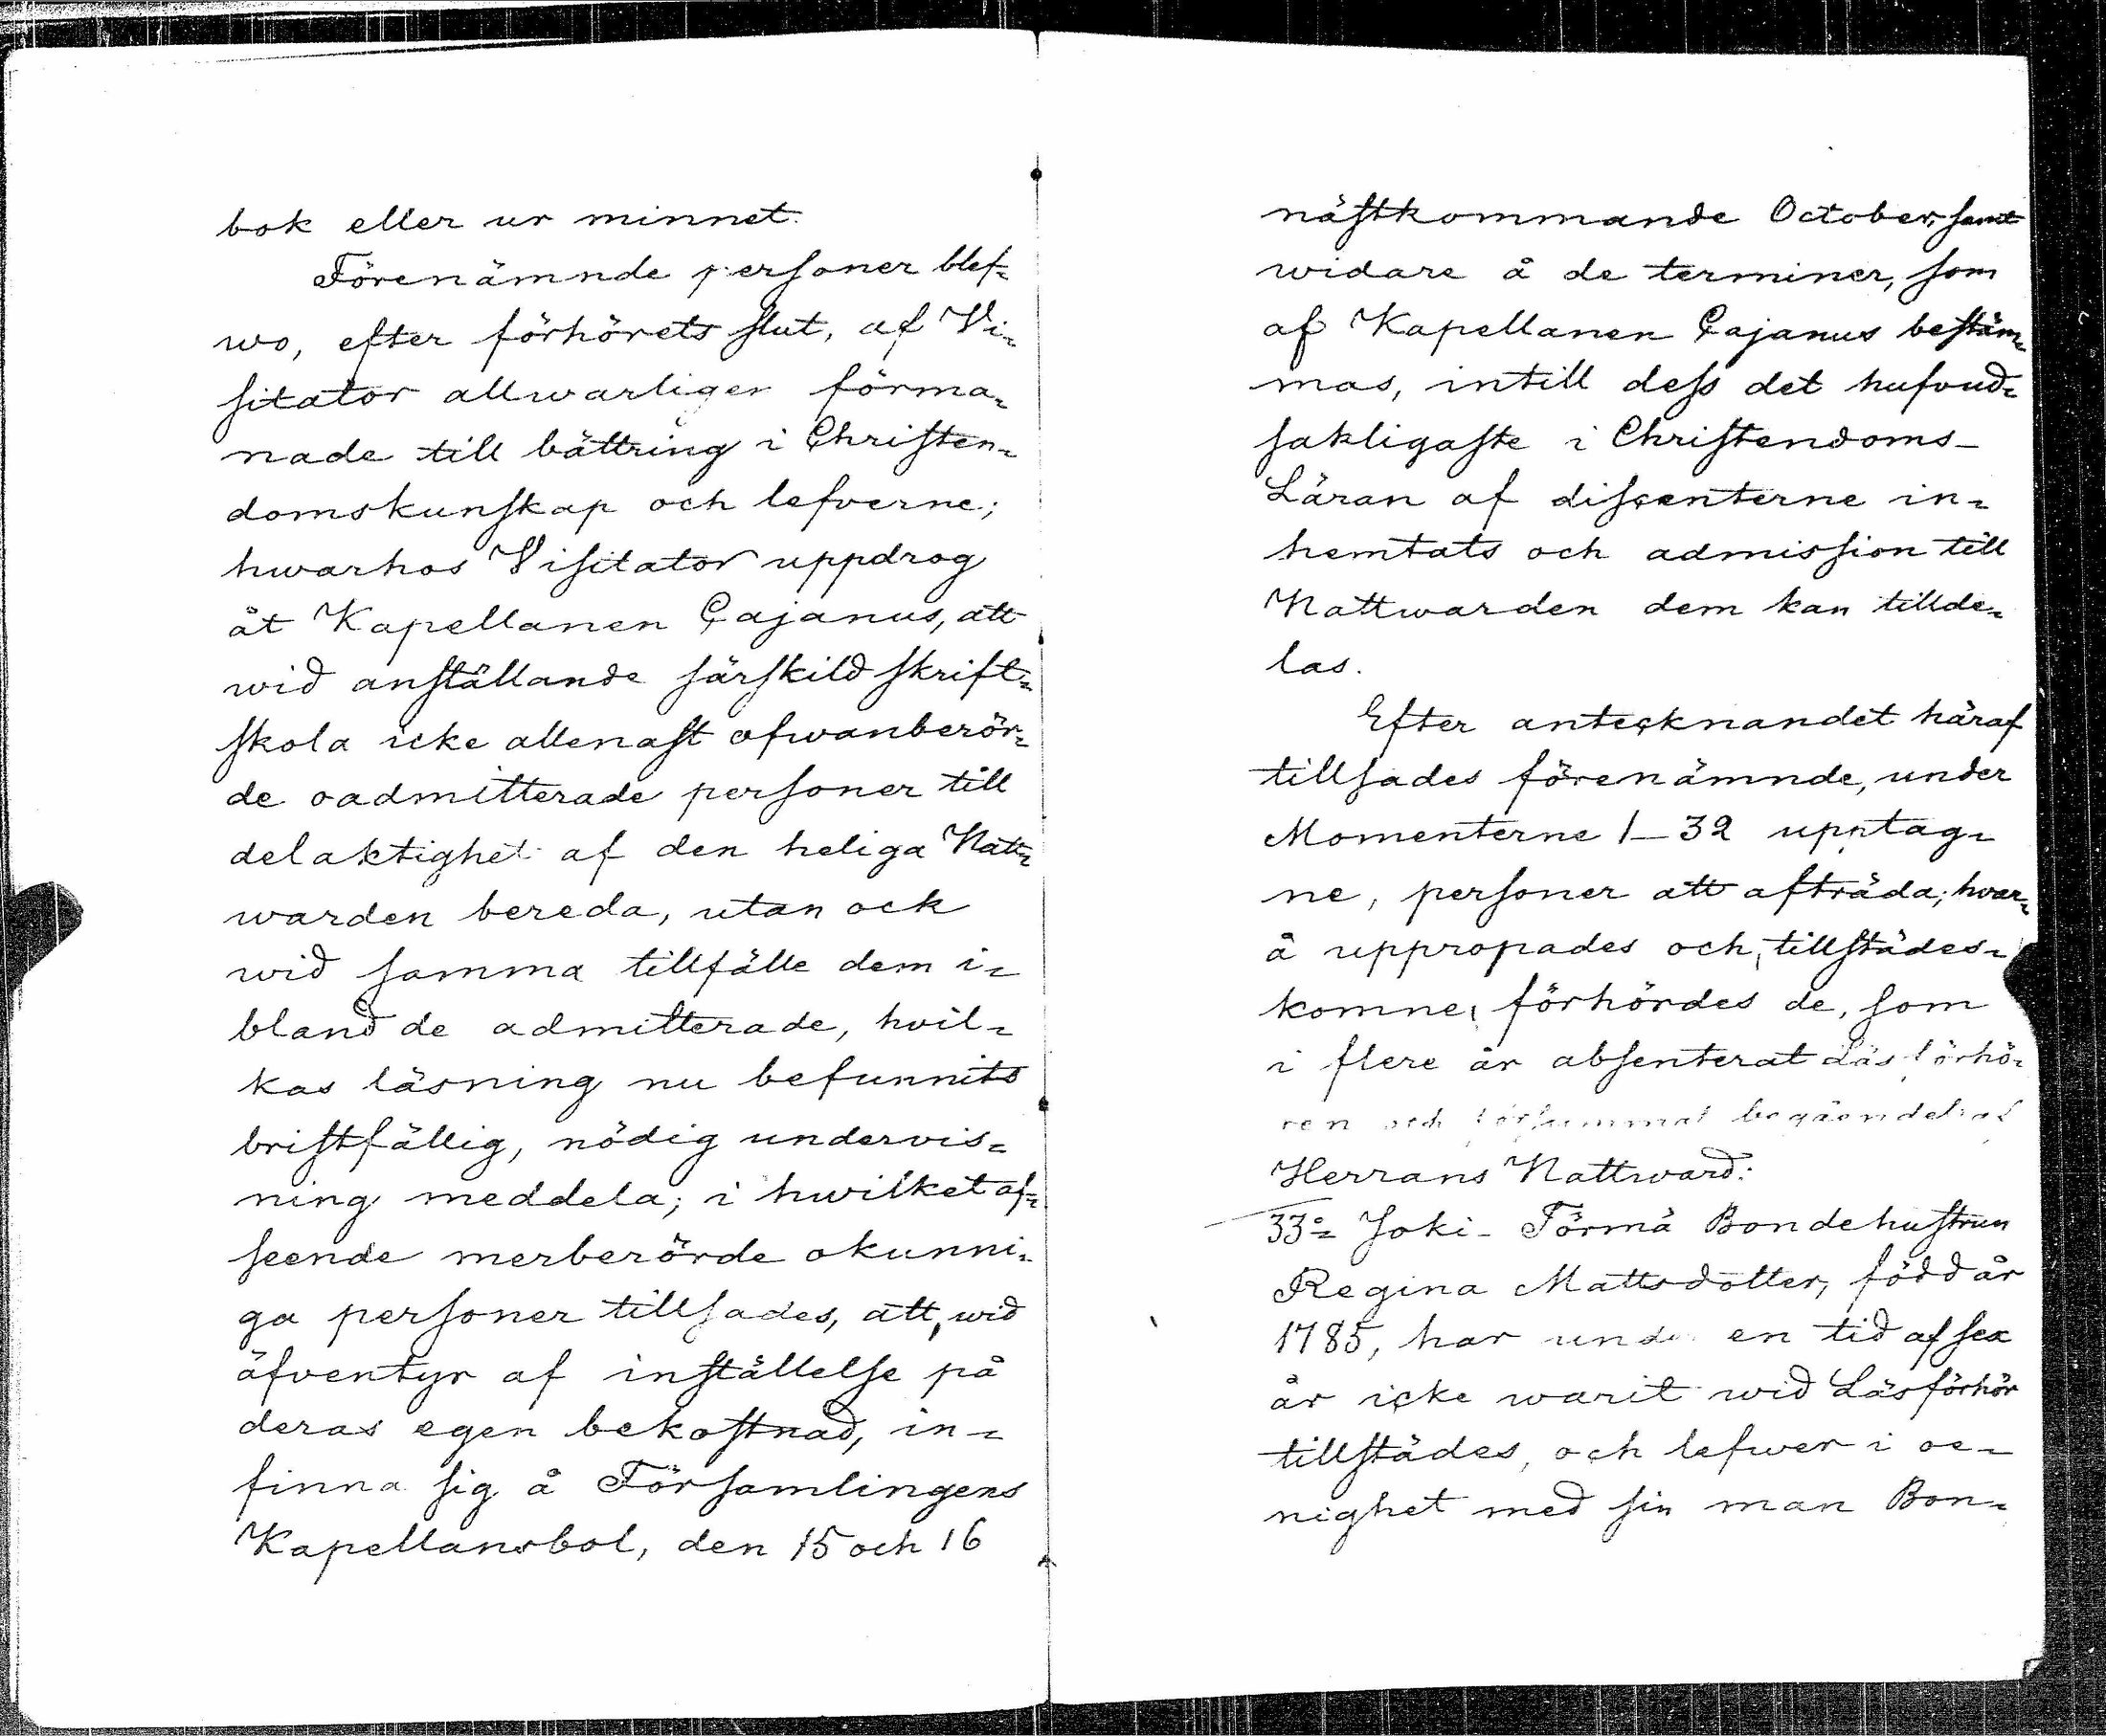 bok eller ur minnet.
Förenämnde personer blef=
wo, efter förhörets slut, af Vi=
sitator allwarligen förma=
nade till bättring i Christen=
domskunskap och lefverne;
hwarhos Visitator uppdrog
åt Kapellanen Cajanus, att
wid anställande särskild skrift=
skola icke allenast ofwanberör=
de oadmitterade personer till
delaktighet af den heliga Natt=
warden bereda, utan ock
wid samma tillfälle dem i=
bland de admitterade, hvil=
kas läsning nu befunnits
bristfällig, nödig undervis=
ning meddela; i hwilket af=
seende merberörde okunni=
ga personer tillsades, att, wid
äfventyr af inställelse på
deras egen bekostnad, in=
finna sig å Församlingens
Kapellansbol, den 15 och 16
nästkommande October, samt
widare å de terminer, som
af Kapellanen Cajanus bestäm=
mas, intill dess det hufvud=
sakligaste i Christendoms-
Läran af discenterne in=
hemtats och admission till
Nattwarden dem kan tillde=
las.
Efter antecknandet häraf
tillsades förenämnde, under
Momenterne 1-32 upptag=
ne, personer att afträda; hvar=
å uppropades och, tillstädes=
komne, förhördes de, som
i flere år absenterat Läsförhö=
ren och försummat begåendet af
Herrans Nattvard:
33:o Joki-Törmä Bondehustrun
Regina Mattsdotter, född år
1785, har under en tid af sex
år icke warit wid Läsförhör
tillstädes, och lefwer i oe=
nighet med sin man Bon=